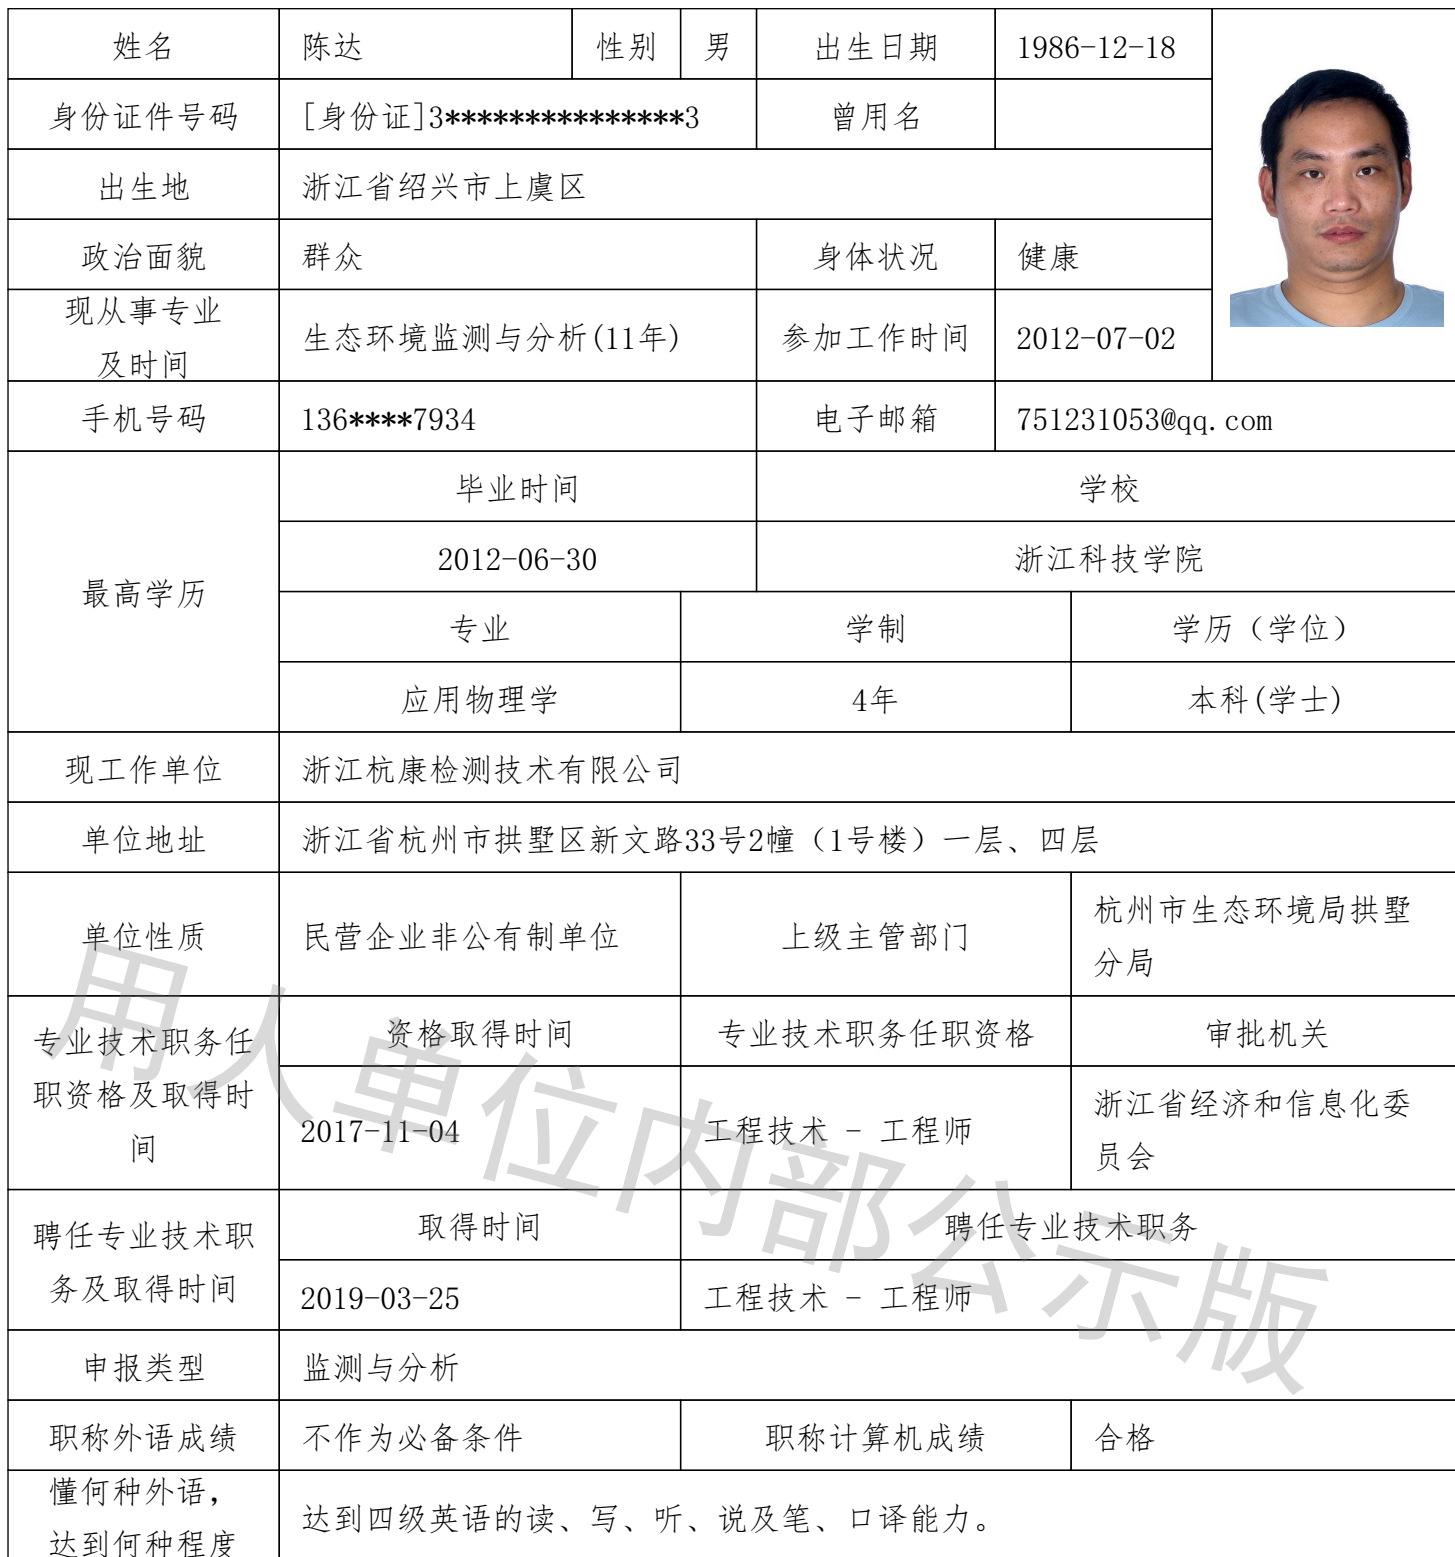 姓名 陈达 性别 男 出生日期 1986-12-18
身份证件号码 [身份证]3***************3 曾用名
出生地 浙江省绍兴市上虞区
政治面貌 群众 身体状况 健康
现从事专业
及时间
生态环境监测与分析(11年) 参加工作时间 2012-07-02
手机号码 136****7934 电子邮箱 751231053@qq.com
最高学历
毕业时间 学校
2012-06-30 浙江科技学院
专业 学制 学历（学位）
应用物理学 4年 本科(学士)
现工作单位 浙江杭康检测技术有限公司
单位地址 浙江省杭州市拱墅区新文路33号2幢（1号楼）一层、四层
单位性质 民营企业非公有制单位 上级主管部门
杭州市生态环境局拱墅
分局
专业技术职务任
职资格及取得时
间
资格取得时间 专业技术职务任职资格 审批机关
2017-11-04 工程技术 - 工程师
浙江省经济和信息化委
员会
聘任专业技术职
务及取得时间
取得时间 聘任专业技术职务
2019-03-25 工程技术 - 工程师
申报类型 监测与分析
职称外语成绩 不作为必备条件 职称计算机成绩 合格
懂何种外语，
达到何种程度
达到四级英语的读、写、听、说及笔、口译能力。
用人单位内部公示版